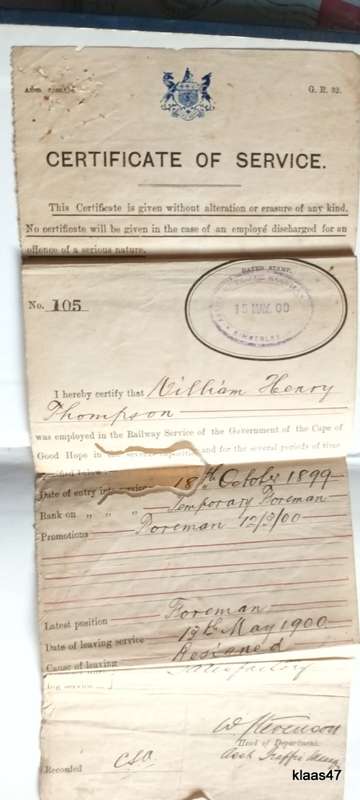 G. R. 32.
CERTIFICATE OF SERVICE.
This Certificate is given without alteration or erasure of any kind.
No certificate will be given in the case of an employé discharged for an
offence of a serious nature.
DATED STAMP.
No. 105
15 MAY. 00
KIMBERLEY
I hereby certify that William Henry
Thompson
was employed in the Railway Service of the Government of the Cape of
Good Hope in several capacities and for the several periods of time
Date of entry into service 18th October 1899
Rank on „ „ „ Temporary Foreman
Promotions Foreman 12/3/00
Latest position Foreman
Date of leaving service 12th May 1900
Cause of leaving Resigned
ing service Satisfactory
W. Stevenson
Head of Department.
Recorded
klaas47